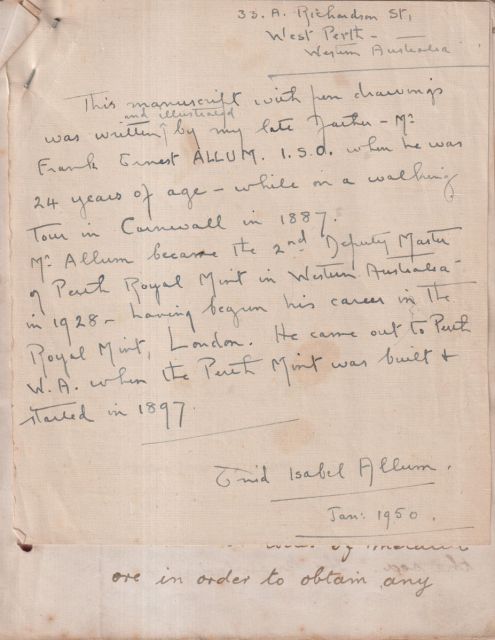 33. A. Richardson St,
West Perth -
Western Australia
This manuscript with pen drawings
and illustrated
was written ^ by my late Father - Mr
Frank Ernest ALLUM. I.S.O. when he was
24 years of age - while on a walking
Tour in Cornewall in 1887.
Mr Allum became the 2nd Deputy Master
of Perth Royal Mint in Western Australia
in 1928 - having begun his career in the
Royal Mint, London. He came out to Perth
W.A. when the Perth Mint was built &
started in 1897.
Enid Isabel Allum.
Jan: 1950.
are in order to obtain any